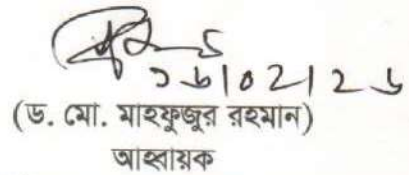 ১৬|০২|২৬
(ড. মো. মাহফুজুর রহমান)
আহ্বায়ক